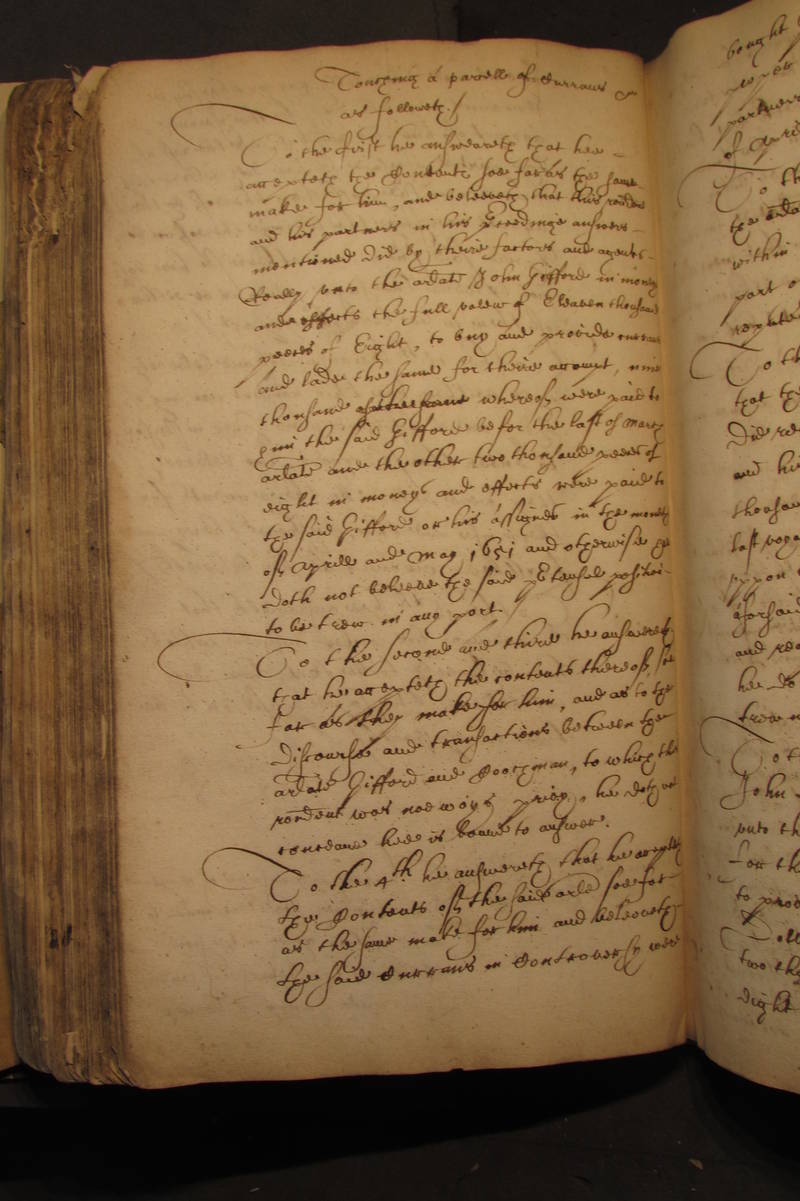 Touching a parcell of Currans
as followeth./
To the first he answeareth that hee
accepteth the Contents soe far as the same
make for him, and beleeveth that this rondent
and his partners in his preedinge answers
mentioned did by theire factors and agents
Really unto the arlate John Gifford in money
and effects the full valew of Eleaven thousand
peeces of Eight, to buy and provide currans
and lade the same for theire accompt, nine
thousand whereof were paid to
him the said Gifford before the last of March
arlate and the other two thousand peeces of
eight in moneys and effects were paid to
the said Gifford or his assignes in the moneth
of Aprill and May 1651 and otherwise he
doth not beleeve the said pretensed position
to be trew in any part.
To the second and third he answereth
that he accepteth the contents thereof soe
far as they make for him, and as to the
discourse and transactions between the
arlate Gifford and Boothman, to which this
rondent was noe wayes privy, he doth not
conceave hee is bound to answer.
To the 4th he answereth that he accepteth
the Contents of the said arle soe far
as the same make for him and beleeveth
the said Currans in Controversy were
bought
partners
of Apri
To th
the
within
part o
To th
that the
did re
and hi
thousan
last
uppon
aforsaid
and
he do
trew
To t
John
unto th
for th
to prov
two th
eight